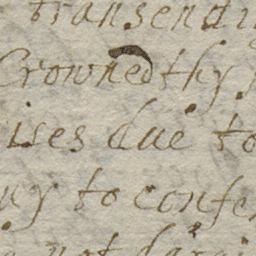 transendi
Crowned thy
ises due to
ny to confe
not